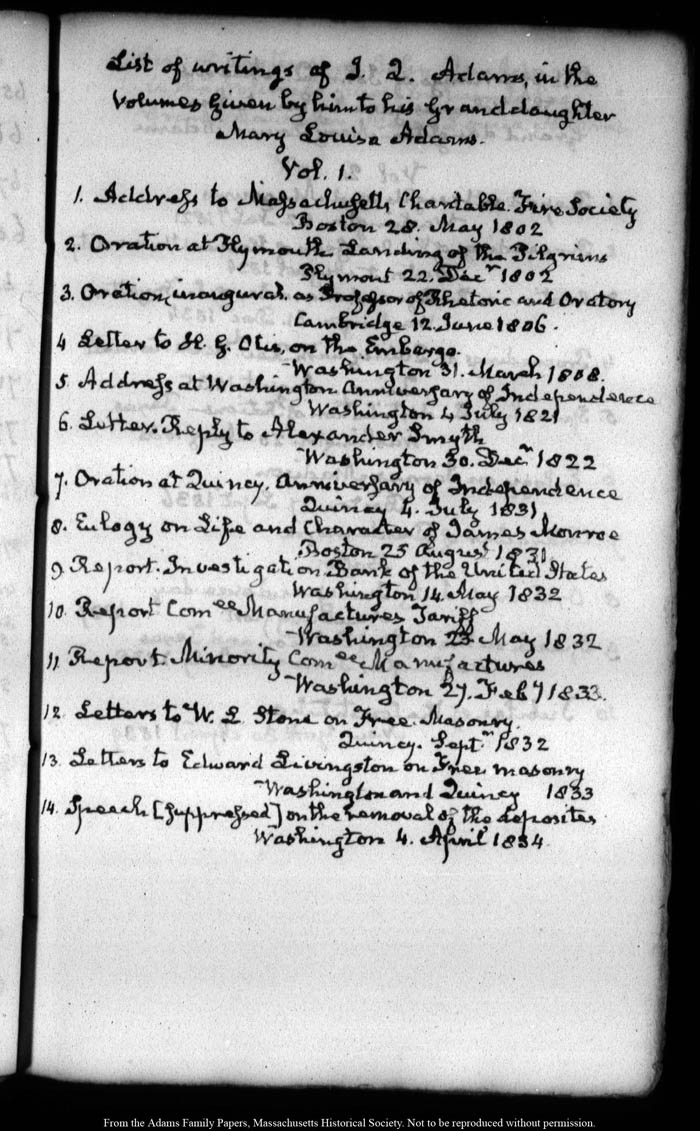 List of writings of J. Q. Adams, in the
Volumes given by him to his Granddaughter
Mary Louisa Adams.
Vol. 1.
1. Address to Massachusetts Charitable Fire Society
Boston 28. May 1802
2. Oration at Plymouth Landing of the Pilgrims
Plymout 22. Decr 1802
3. Oration, inaugural. as Professor of Rhetoric and Oratory
Cambridge 12. June 1806.
4 Letter to H. G. Otis, on the Embargo.
Washington 31. March 1808.
5. Address at Washington Anniversary of Independence
Washington 4 July 1821
6. Letter. Reply to Alexander Smyth
Washington 30. Decr 1822
7. Oration at Quincy. Anniversary of Independence
Quincy 4. July 1831
8. Eulogy on Life and Character of James Monroe
Boston 25 August 1831
9. Report. Investigation Bank of the United States
Washington 14. May 1832
10. Report Comee Manufactures Tariff
Washington 23. May 1832
11. Report. Minority Comee Manufactures
Washington 27. Feby 1833.
12. Letters to W. L Stone on Free. Masonry.
Quincy. Septr 1832
13. Letters to Edward Livingston on Free masonry
Washington and Quincy 1833
14. Speech [suppressed] on the removal of the deposites
Washington 4. April 1834
From the Adams Family Papers, Massachusetts Historical Society. Not to be reproduced without permission.